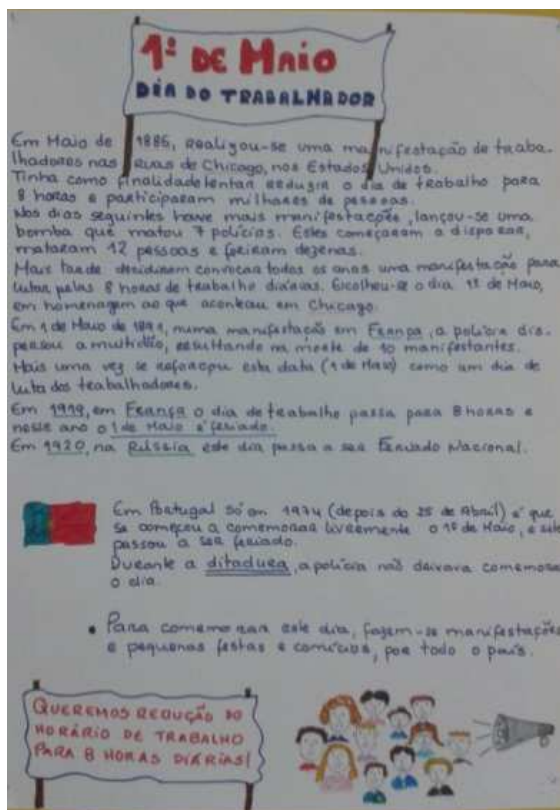 1º DE MAIO
DIA DO TRABALHADOR
Em Maio de 1886, realizou-se uma manifestação de traba-
lhadores nas Ruas de Chicago, nos Estados Unidos.
Tinha como finalidade tentar reduzir o dia de trabalho para
8 horas e participaram milhares de pessoas.
Nos dias seguintes houve mais manifestações, lançou-se uma
bomba que matou 7 polícias. Estes começaram a disparar,
mataram 12 pessoas e feriram dezenas.
Mais tarde decidiram convocar todos os anos uma manifestação para
lutar pelas 8 horas de trabalho diárias. Escolheu-se o dia 1º de Maio,
em homenagem ao que aconteceu em Chicago.
Em 1 de Maio de 1891, numa manifestação em França, a polícia dis-
persou a multidão, resultando na morte de 10 manifestantes.
Mais uma vez se reforçou esta data (1 de Maio) como um dia de
luta dos trabalhadores.
Em 1919, em França o dia de trabalho passa para 8 horas e
neste ano o 1 de Maio é feriado.
Em 1920, na Rússia este dia passa a ser Feriado Nacional.
Em Portugal só em 1974 (depois do 25 de Abril) é que
se começou a comemorar livremente o 1º de Maio, e este
passou a ser feriado.
Durante a ditadura, a polícia não deixava comemorar
o dia.
• Para comemorar este dia, fazem-se manifestações
e pequenas festas e comícios, por todo o país.
QUEREMOS REDUÇÃO DO
HORÁRIO DE TRABALHO
PARA 8 HORAS DIÁRIAS!